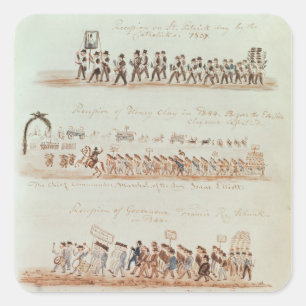 Reception on St. Patrick day by the
Catholics. 1837.
Reception of Henry Clay in 1844. Before the
The Chief Commander, Marshal of the day, Isaac Elliott
Reception of Governour Francis R. Shunk
in 1844.